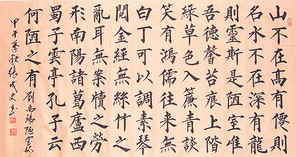 山不在高有仙則
名水不在深有龍
則靈斯是陋室惟
吾德馨苔痕上階
綠草色入簾青談
笑有鴻儒往来無
白丁可以調素琴
閱金經無絲竹之
亂耳無案牘之勞
形南陽諸葛廬西
蜀子雲亭孔子云
何陋之有 劉禹錫陋室銘
甲午年秋張